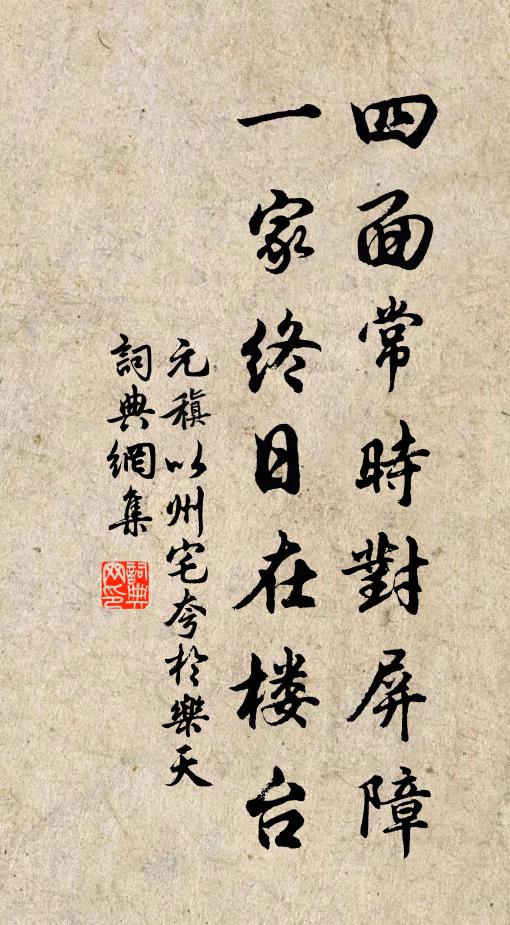 四面常時對屏障
一家終日在楼台
元稹以州宅夸於樂天
詞典網集
詞典网印